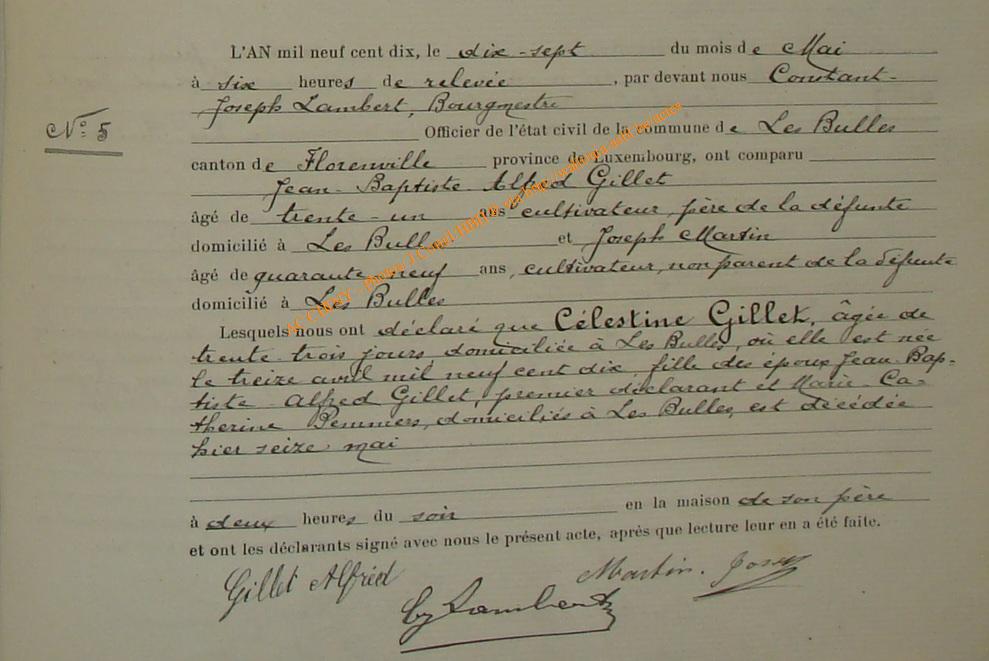 L'AN mil neuf cent dix, le dix-sept du mois de Mai
à six heures de relevée, par devant nous Constant-
Joseph Lambert, Bourgmestre
N° 5
Officier de l'état civil de la commune de Les Bulles
canton de Florenville province de Luxembourg, ont comparu
Jean-Baptiste-Alfred Gillet
âgé de trente-un ans cultivateur, père de la défunte
domicilié à Les Bulles et Joseph Martin
âgé de quarante-neuf ans, cultivateur, non parent de la défunte
domicilié à Les Bulles
Lesquels nous ont déclaré que Célestine Gillet, âgée de
trente-trois jours, domiciliée à Les Bulles, où elle est née
le treize avril mil neuf cent dix, fille des époux Jean-Bap-
tiste-Alfred Gillet, premier déclarant et Marie-Ca-
therine Pemmers, domiciliés à Les Bulles, est décédée
hier seize mai
à deux heures du soir en la maison de son père
et ont les déclarants signé avec nous le présent acte, après que lecture leur en a été faite.
Gillet Alfred
Martin. Joseph
Lambert